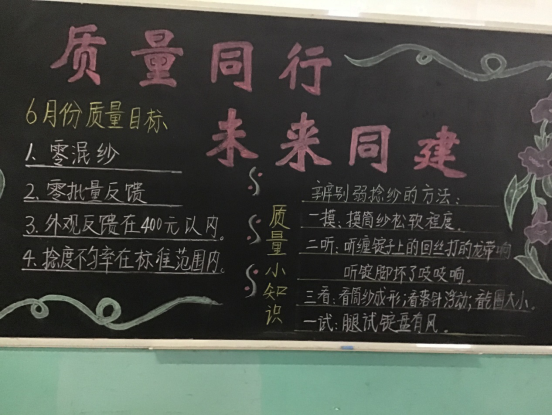 质量同行
未来同建
6月份质量目标
1、零混纱
2、零批量反馈
3、外观反馈在400元以内。
4、捻度不匀率在标准范围内。
质量小知识
辨别弱捻纱的方法：
一摸：摸筒纱松软程度。
二听：听缠锭子上的回丝打的龙带响
听锭脚坏了吱吱响。
三看：看筒纱成形；看落针浮动；看气圈大小。
一试：腿试锭盘有风。